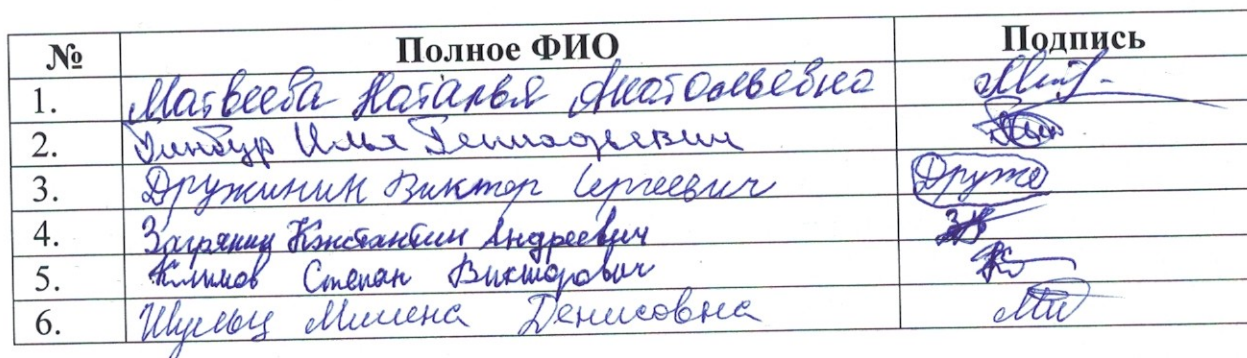 № Полное ФИО Подпись
1. Матвеева Наталья Анатольевна
2. Илья Геннадьевич
3. Дружинин Виктор Сергеевич Друж
4. Загрянин Константин Андреевич
5. Климов Степан Викторович
6. Шульц Милена Денисовна